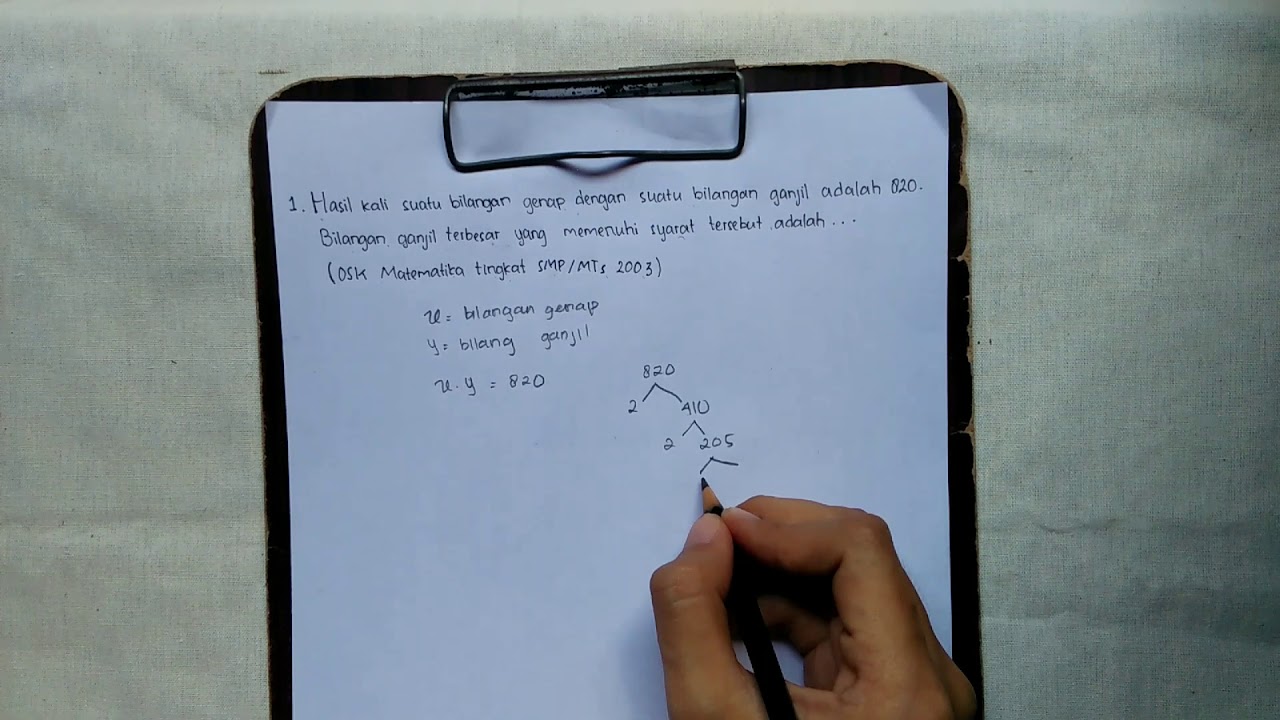 1. Hasil kali suatu bilangan genap dengan suatu bilangan ganjil adalah 820.
Bilangan ganjil terbesar yang memenuhi syarat tersebut adalah ...
(OSK Matematika tingkat SMP/MTs 2003)
x = bilangan genap
y = bilang ganjil
x . y = 820
820
2 410
2 205